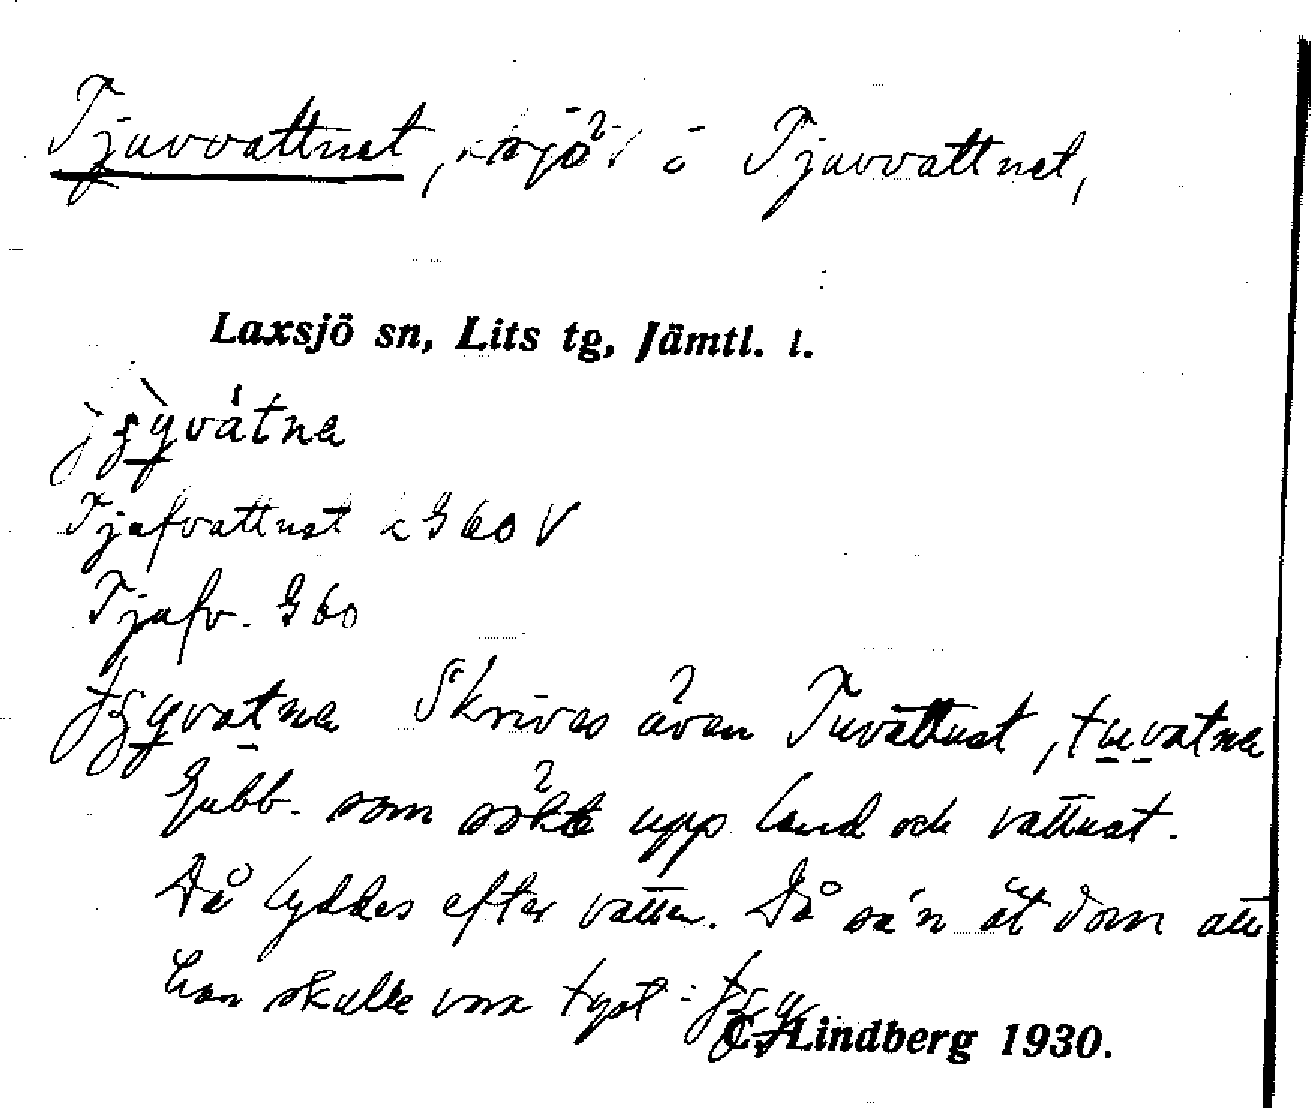 Tjuvvattnet, sjö i Tjuvvattnet,
Laxsjö sn, Lits tg, Jämtl. l.
Tjufvattnet G 60 V
Tjufv. G 60
Skrives även Tuvattnet, tuvatna
Gubb. som sökte upp land och vattnet.
Då lyddes efter vatten. Då sa'n åt dom att
han skulle vara tyst:
C. Lindberg 1930.